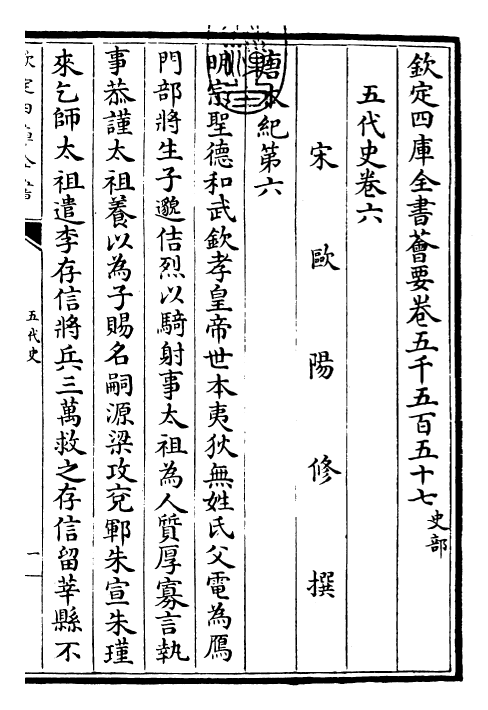 欽定四庫全書薈要卷五千五百五十七 史部
五代史卷六
宋 歐 陽 修 撰
唐本紀第六
明宗聖德和武欽孝皇帝世本夷狄無姓氏父電為鴈
門部將生子邈佶烈以騎射事太祖為人質厚寡言執
事恭謹太祖養以為子賜名嗣源梁攻兗鄆朱宣朱瑾
來乞師太祖遣李存信將兵三萬救之存信留莘縣不
欽定四庫全書
五代史
一